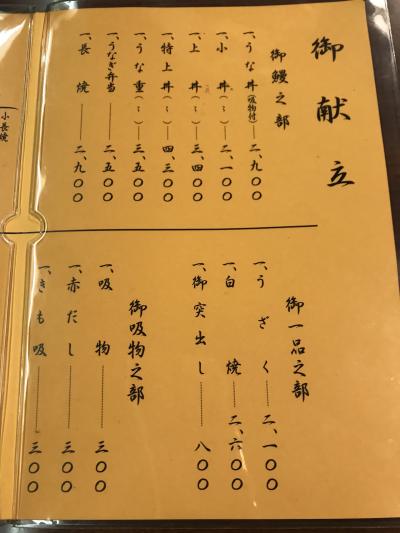 御献立
御鰻之部
一、うな丼(吸物付)二、九〇〇
一、小丼(〃)二、一〇〇
一、上丼(〃)三、四〇〇
一、特上丼(〃)四、三〇〇
一、うな重(〃)三、五〇〇
一、うなぎ弁当二、五〇〇
一、長焼二、九〇〇
御一品之部
一、うざく二、一〇〇
一、白焼二、六〇〇
一、御突出し八〇〇
御吸物之部
一、吸物三〇〇
一、赤だし三〇〇
一、きも吸三〇〇
小長焼